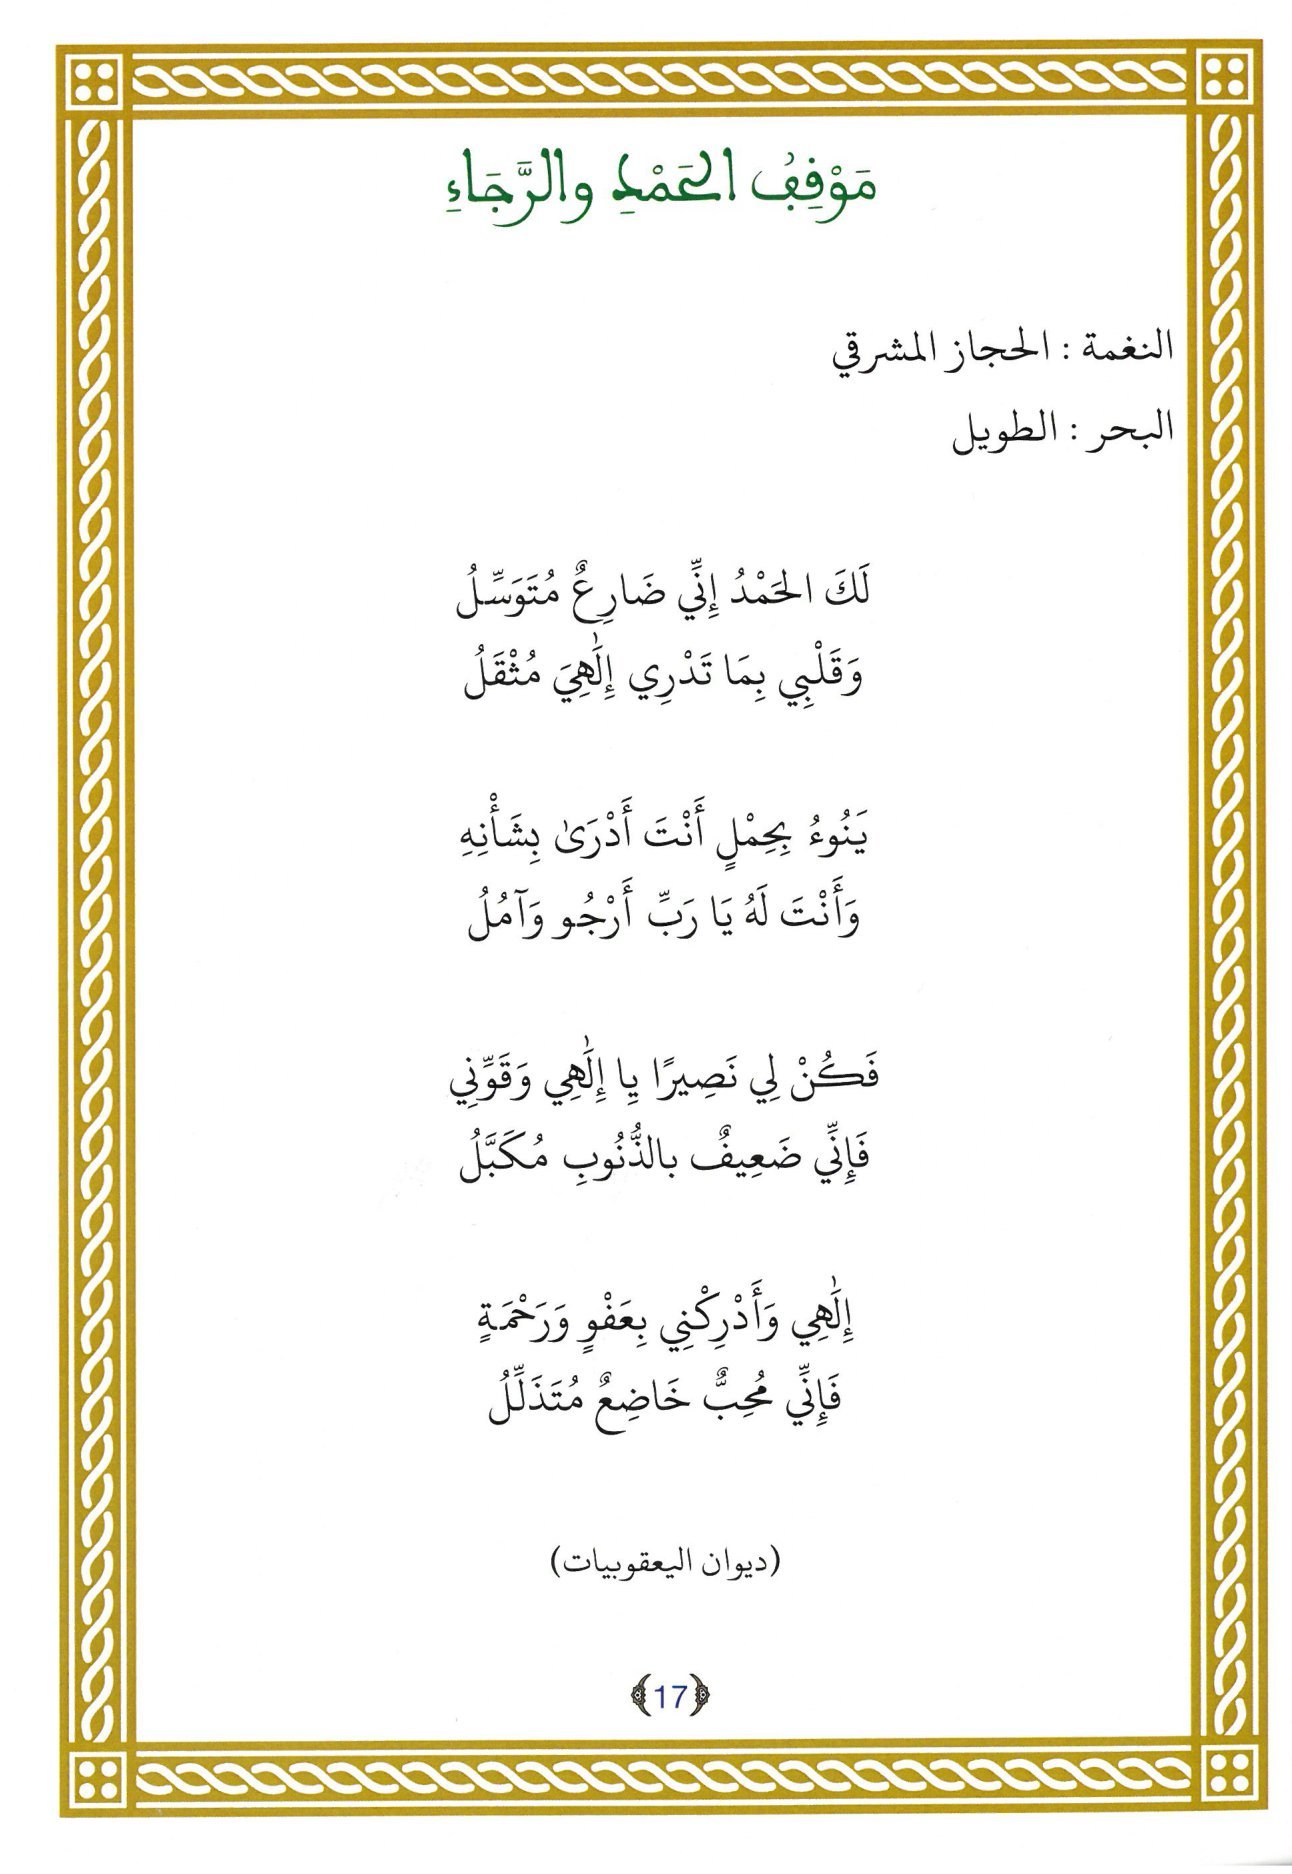 مَوْقِفُ الحَمْدِ والرَّجَاءِ
النغمة : الحجاز المشرقي
البحر : الطويل
لَكَ الحَمْدُ إِنِّي ضَارِعٌ مُتَوَسِّلُ
وَقَلْبِي بِمَا تَدْرِي إِلَٰهِيَ مُثْقَلُ
يَنُوءُ بِحِمْلٍ أَنْتَ أَدْرَىٰ بِشَأْنِهِ
وَأَنْتَ لَهُ يَا رَبِّ أَرْجُو وَآمُلُ
فَكُنْ لِي نَصِيرًا يِا إِلَٰهِي وَقَوِّنِي
فَإِنِّي ضَعِيفٌ بالذُّنُوبِ مُكَبَّلُ
إِلَٰهِي وَأَدْرِكْنِي بِعَفْوٍ وَرَحْمَةٍ
فَإِنِّي مُحِبٌّ خَاضِعٌ مُتَذَلِّلُ
(ديوان اليعقوبيات)
17